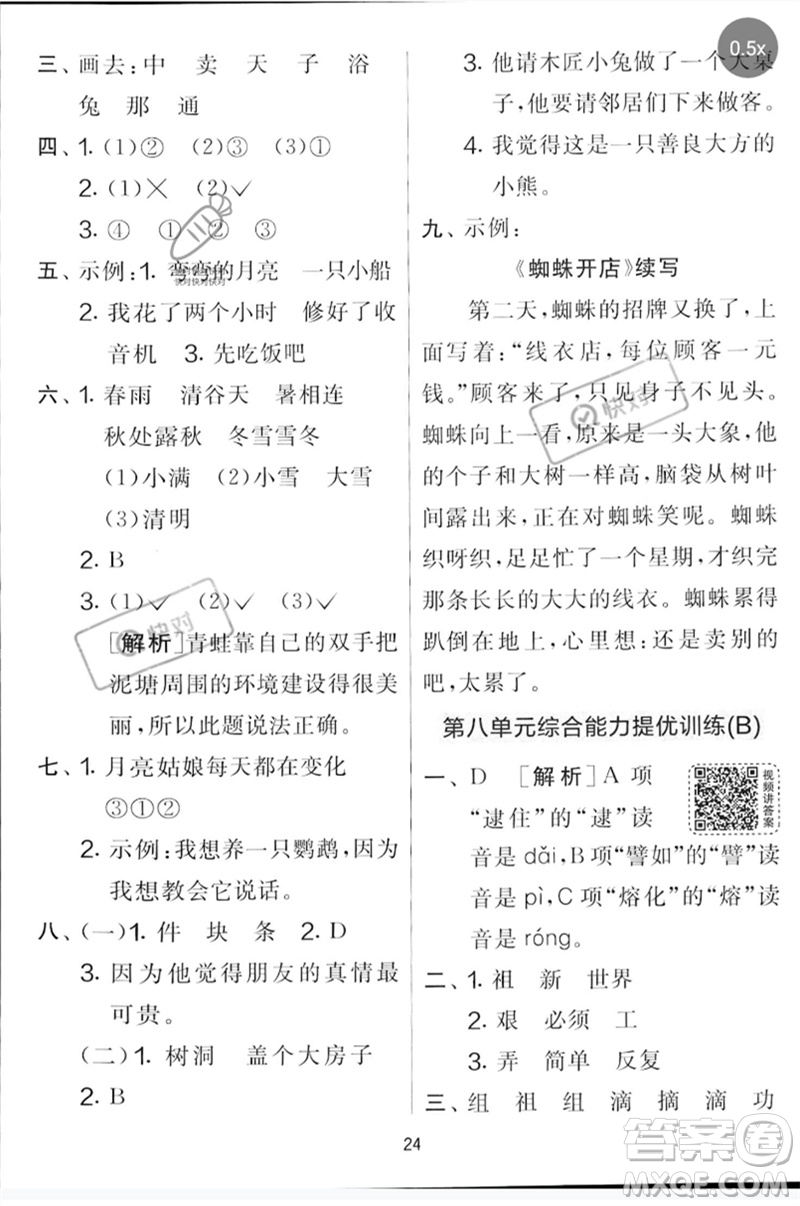 0.5x
三、画去:中 卖 天 子 浴
兔 那 通
四、1.(1)② (2)③ (3)①
2.(1)✕ (2)✓
3.④ ① ② ③
五、示例:1.弯弯的月亮 一只小船
快对快对快对
2.我花了两个小时 修好了收
音机 3.先吃饭吧
六、1.春雨 清谷天 暑相连
秋处露秋 冬雪雪冬
(1)小满 (2)小雪 大雪
(3)清明
2.B
3.(1)✓ (2)✓ (3)✓
[解析]青蛙靠自己的双手把
泥塘周围的环境建设得很美
丽,所以此题说法正确。
七、1.月亮姑娘每天都在变化
③①②
2.示例:我想养一只鹦鹉,因为
我想教会它说话。
八、(一)1.件 块 条 2.D
3.因为他觉得朋友的真情最
可贵。
(二)1.树洞 盖个大房子
2.B
快对
3.他请木匠小兔做了一个大桌
子,他要请邻居们下来做客。
4.我觉得这是一只善良大方的
小熊。
九、示例:
《蜘蛛开店》续写
第二天,蜘蛛的招牌又换了,上
面写着:“线衣店,每位顾客一元
钱。”顾客来了,只见身子不见头。
蜘蛛向上一看,原来是一头大象,他
的个子和大树一样高,脑袋从树叶
间露出来,正在对蜘蛛笑呢。蜘蛛
织呀织,足足忙了一个星期,才织完
那条长长的大大的线衣。蜘蛛累得
趴倒在地上,心里想:还是卖别的
吧,太累了。
快对
第八单元综合能力提优训练(B)
一、D [解析]A 项
“逮住”的“逮”读
音是 dǎi,B项“譬如”的“譬”读
音是 pì,C 项“熔化”的“熔”读
音是 róng。
视频讲答案
二、1.祖 新 世界
2.艰 必须 工
3.弄 简单 反复
三、组 祖 组 滴 摘 滴 功
24
答案卷
MXQE.COM